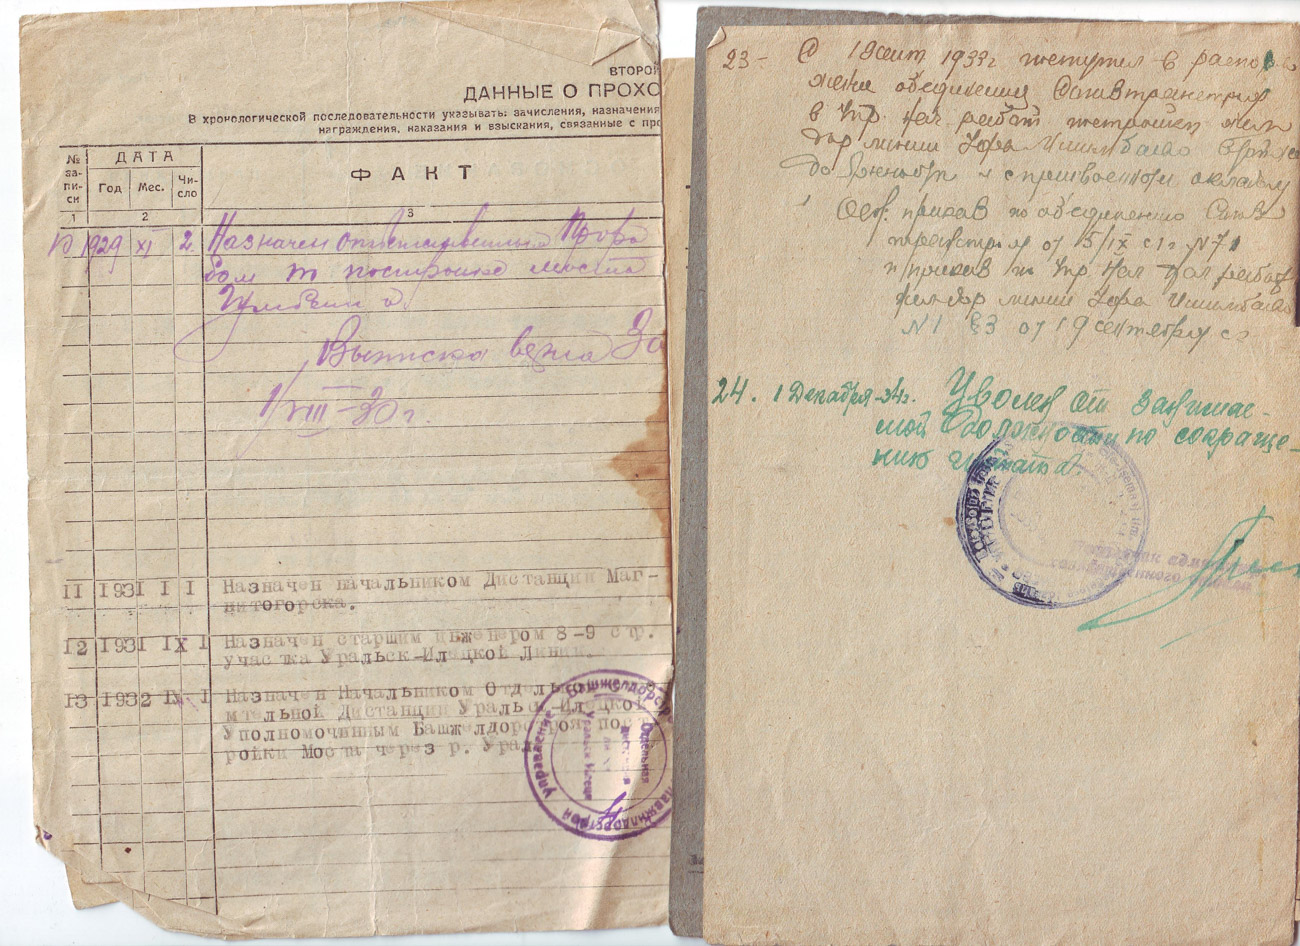 ВТОРОЙ
ДАННЫЕ О ПРОХО
В хронологической последовательности указывать: зачисления, назначения
награждения, наказания и взыскания, связанные с про
№ за-пи-си
ДАТА
Год Мес. Чи-сло
ФАКТ
1 2 3
10 1929 XI 2. Назначен ответственным Прора
бом по постройке моста
Выписка верна За
1/VIII-30 г.
11 1931 I I Назначен начальником Дистанции Маг-
нитогорска.
12 1931 IX I Назначен старшим инженером 8-9 стр.
участка Уральск-Илецкой Линии.
13 1932 IX I Назначен Начальником Отдельной
Дистанции Уральск-Илецкой
Уполномоченным Башжелдорстроя пост
ройки Моста через р. Урал
Башжелдорстрой
управление
Отдельная
23- С 1 Сент 1933 г поступил в распоря
жение объединения Союзтранстрой
в Упр. Нач работ постройки жел
дор линии Уфа Ишимбаево
Осн: приказ по объединению Союз
транстрой от 15/IX с г N 71
и приказ по Упр Нач работ
жел дор линии Уфа Ишимбаево
N 1 §3 от 19 сентября с г
24. 1 Декабря-34г. Уволен от занимае-
мой должности по сокраще-
нию штата